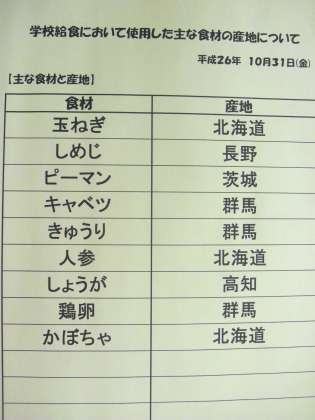 学校給食において使用した主な食材の産地について
平成26年 10月31日(金)
【主な食材と産地】
食材 産地
玉ねぎ 北海道
しめじ 長野
ピーマン 茨城
キャベツ 群馬
きゅうり 群馬
人参 北海道
しょうが 高知
鶏卵 群馬
かぼちゃ 北海道